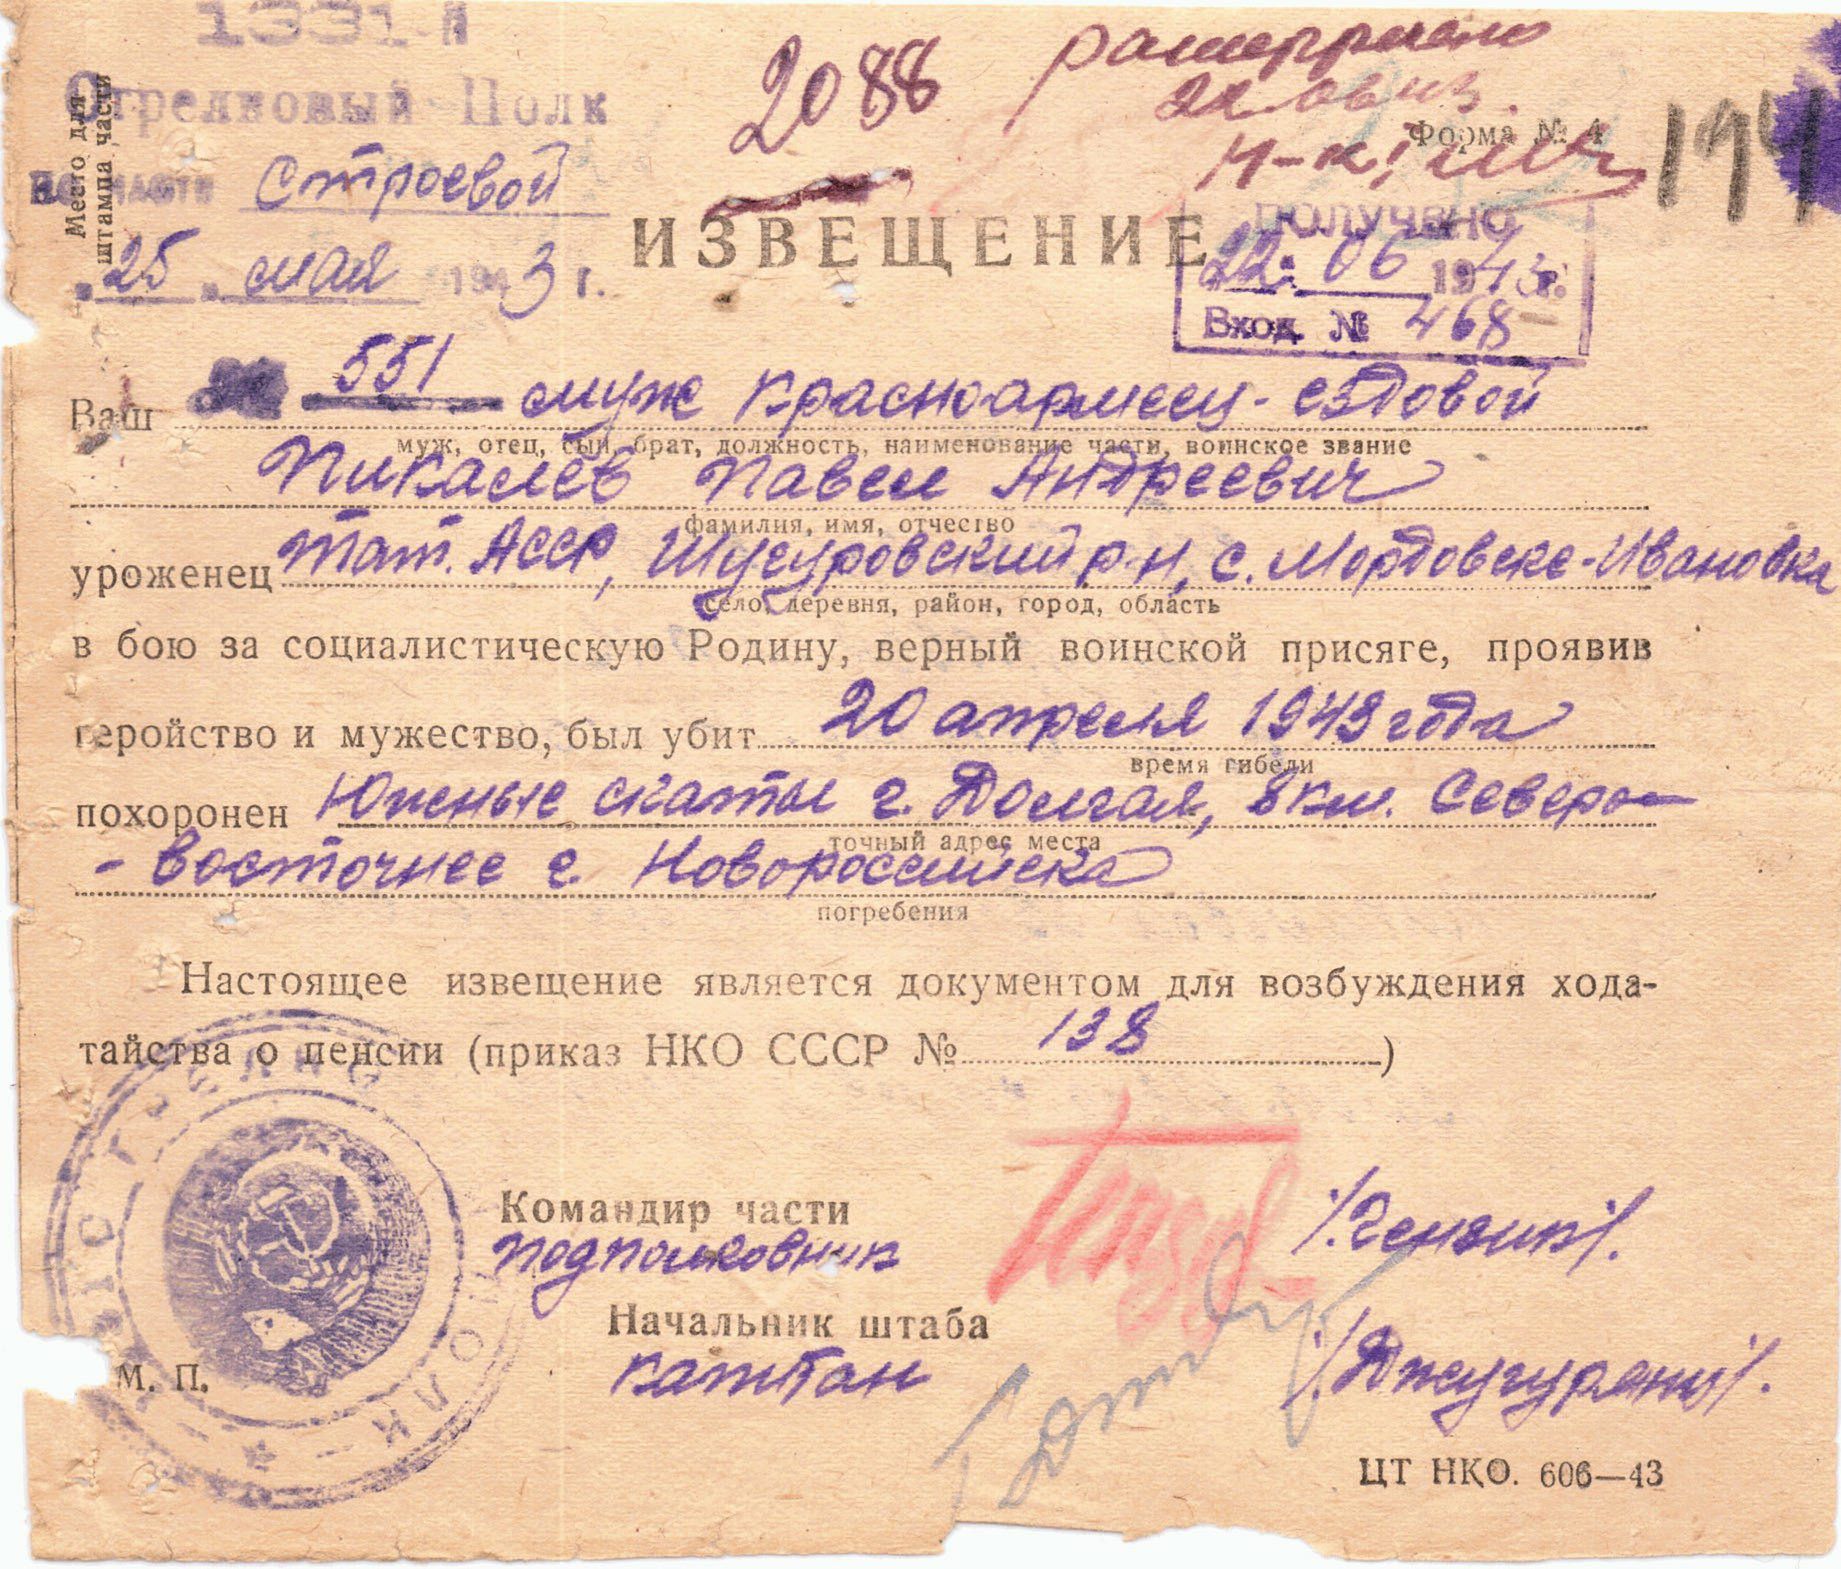 1331-й
Стрелковый Полк
По части Строевой
"25" мая 1943 г.
Место для
штампа части
2088
22
Форма № 4
194
ИЗВЕЩЕНИЕ
ПОЛУЧЕНО
22. 06 1943г.
Вход. № 468
Ваш 551 муж красноармеец-ездовой
муж, отец, сын, брат, должность, наименование части, воинское звание
Пикалев Павел Андреевич
фамилия, имя, отчество
уроженец Тат. АССР, Шугуровский р-н, с. Мордовске-Ивановка
село, деревня, район, город, область
в бою за социалистическую Родину, верный воинской присяге, проявив
геройство и мужество, был убит 20 апреля 1943 года
время гибели
похоронен Южные скаты г. Долгая, 8 км. Северо-
точный адрес места
- восточнее г. Новороссийска
погребения
Настоящее извещение является документом для возбуждения хода-
тайства о пенсии (приказ НКО СССР № 138)
Командир части
подполковник
Начальник штаба
капитан
М. П.
ПОЛК
ЦТ НКО. 606—43